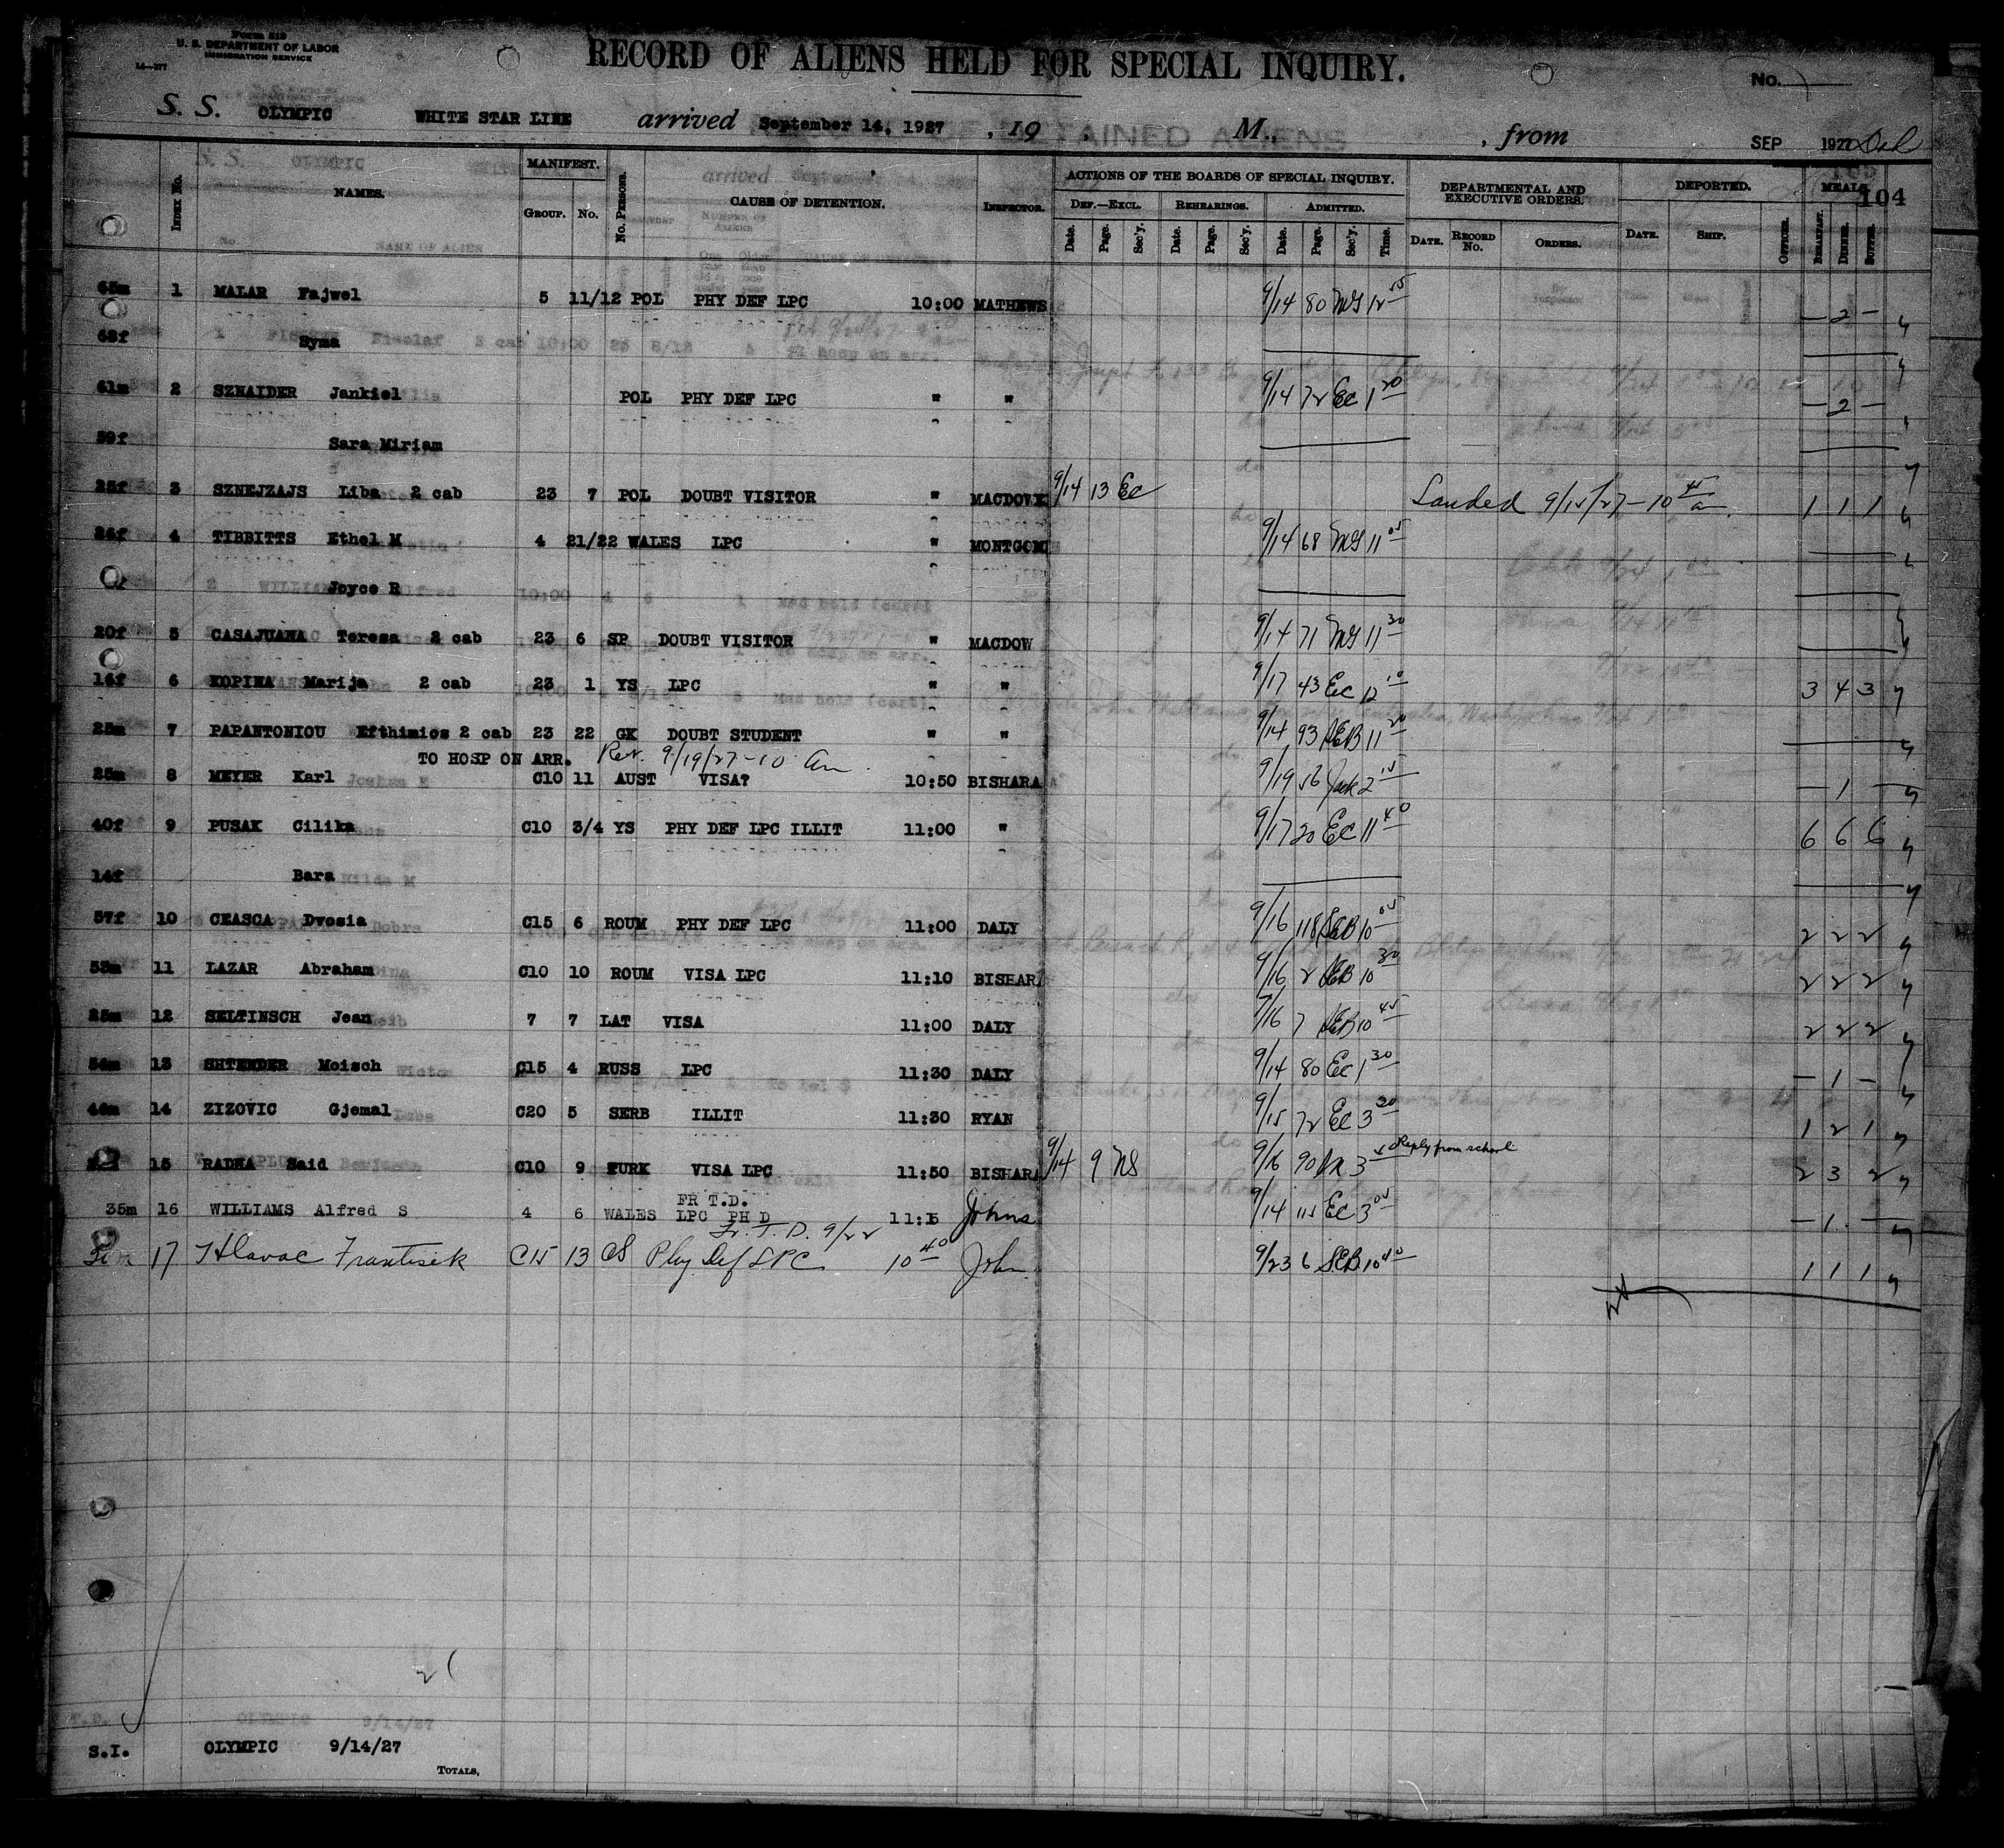 Form 819
U. S. DEPARTMENT OF LABOR
IMMIGRATION SERVICE
14—377
RECORD OF ALIENS HELD FOR SPECIAL INQUIRY.
No.
S. S. OLYMPIC WHITE STAR LINE arrived September 14, 1927, 19 M., from SEP 1927
104
INDEX No. NAMES. MANIFEST. GROUP. No. No. PERSONS. CAUSE OF DETENTION. INSPECTOR. ACTIONS OF THE BOARDS OF SPECIAL INQUIRY. DEPARTMENTAL AND EXECUTIVE ORDERS. DEPORTED. MEALS
DEF.—EXCL. REHEARINGS. ADMITTED.
Date. Page. Sec'y. Date. Page. Sec'y. Date. Page. Sec'y. Time. DATE. RECORD No. ORDERS. DATE. SHIP. OFFICER. BREAKFAST. DINNER. SUPPER.
65m 1 MALAR Fajwel 5 11/12 POL PHY DEF LPC 10:00 MATHEWS 9/14 80 MG 12 55 — 2 —
63f Syma
61m 2 SZNAIDER Jankiel POL PHY DEF LPC " " 9/14 72 EC 1 20 — 2 —
59f Sara Miriam
25f 3 SZNEJZAJS Liba 2 cab 23 7 POL DOUBT VISITOR " MACDOW 9/14 13 EC Landed 9/15/27 — 10 45 a. 1 1 1
26f 4 TIBBITTS Ethel M 4 21/22 WALES LPC " MONTGOM 9/14 68 MG 11 05
Joyce R
20f 5 CASAJUANA Teresa 2 cab 23 6 SP DOUBT VISITOR " MACDOW 9/14 71 MG 11 30
16f 6 KOPINA Marija 2 cab 23 1 YS LPC " " 9/17 43 EC 12 10 3 4 3
25m 7 PAPANTONIOU Efthimios 2 cab 23 22 GK DOUBT STUDENT " " 9/14 93 SEB 11 20
TO HOSP ON ARR. Ret. 9/19/27 — 10 am
25m 8 MEYER Karl C10 11 AUST VISA? 10:50 BISHARA 9/19 56 2 15 — 1 —
40f 9 PUSAK Cilika C10 3/4 YS PHY DEF LPC ILLIT 11:00 " 9/17 20 EC 11 40 6 6 6
14f Bara
57f 10 CEASCA Dvosia C15 6 ROUM PHY DEF LPC 11:00 DALY 9/16 118 SEB 10 05 2 2 2
53m 11 LAZAR Abraham C10 10 ROUM VISA LPC 11:10 BISHARA 9/16 2 SEB 10 30 2 2 2
25m 12 SELTINSCH Jean 7 7 LAT VISA 11:00 DALY 9/16 7 SEB 10 45 2 2 2
54m 13 SHTENDER Moisch C15 4 RUSS LPC 11:30 DALY 9/14 80 EC 1 30 — 1 —
46m 14 ZIZOVIC Gjemal C20 5 SERB ILLIT 11:30 RYAN 9/15 72 EC 3 20 1 2 1
15 RADHA Said C10 9 TURK VISA LPC 11:50 BISHARA 9/14 9 NS 9/16 90 3 Reply from school 2 3 2
FR T.D.
35m 16 WILLIAMS Alfred S 4 6 WALES LPC PH D 11:15 Johns 9/14 115 EC 3 05 — 1 —
Fr. T. D. 9/22
17 Hlavac Frantisek C15 13 CS Phy Def LPC 10 40 John 9/23 6 SEB 10 40 1 1 1
21
OLYMPIC 9/14/27
S.I. OLYMPIC 9/14/27
TOTALS,